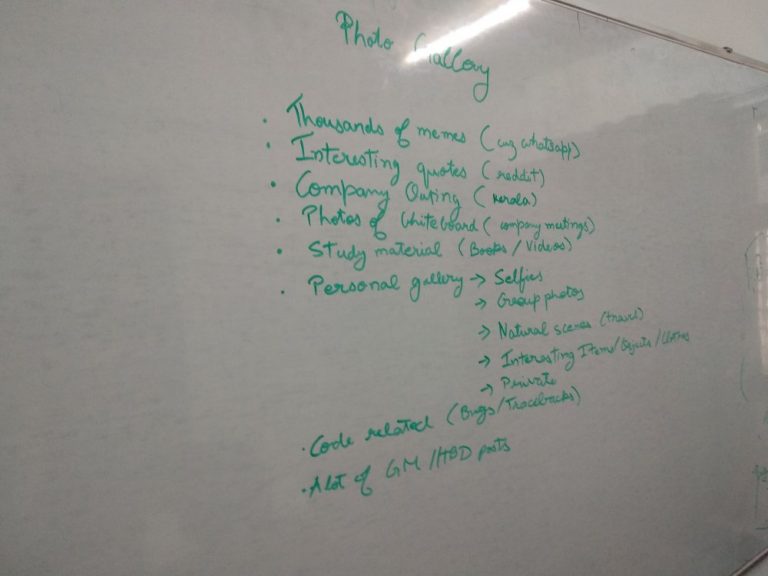 Photo Gallery
· Thousands of memes (cuz whatsapp)
· Interesting quotes (reddit)
· Company Outing (Kerala)
· Photos of Whiteboard (company meetings)
· Study material (Books / Videos)
· Personal gallery → Selfies
→ Group photos
→ Natural scenes (travel)
→ Interesting Items/Objects/
→ Private
· Code related (Bugs/Tracebacks)
· A lot of GM /HBD posts